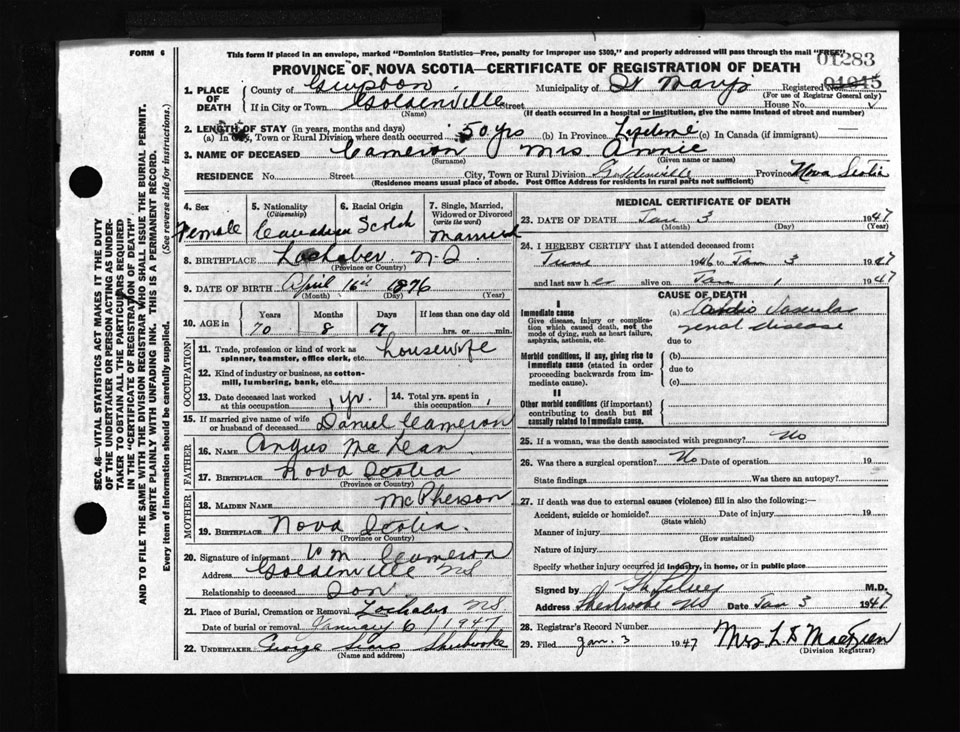 FORM 6
This form if placed in an envelope, marked "Dominion Statistics—Free, penalty for improper use $300," and properly addressed will pass through the mail "FREE"
01283
PROVINCE OF NOVA SCOTIA—CERTIFICATE OF REGISTRATION OF DEATH
01045
1. PLACE OF DEATH
County of Municipality of St Marys Registered No.
(For use of Registrar General only)
If in City or Town Goldenville Street House No.
(Name) (If death occurred in a hospital or institution, give the name instead of street and number)
2. LENGTH OF STAY (in years, months and days)
(a) In City, Town or Rural Division where death occurred 50 yrs (b) In Province Lifetime (c) In Canada (if immigrant) —
3. NAME OF DECEASED Cameron Mrs. Annie
(Surname) (Given name or names)
RESIDENCE No. Street City, Town or Rural Division Goldenville Province Nova Scotia
(Residence means usual place of abode. Post Office Address for residents in rural parts not sufficient)
4. Sex Female
5. Nationality (Citizenship) Canadian
6. Racial Origin Scotch
7. Single, Married, Widowed or Divorced (write the word) Married
8. BIRTHPLACE Lochaber N.S.
(Province or Country)
9. DATE OF BIRTH April 16th 1876
(Month) (Day) (Year)
10. AGE in Years Months Days If less than one day old
70 8 17 hrs. or min.
OCCUPATION
11. Trade, profession or kind of work as spinner, teamster, office clerk, etc. housewife
12. Kind of industry or business, as cotton-mill, lumbering, bank, etc.
13. Date deceased last worked at this occupation 1 yr. 14. Total yrs. spent in this occupation
15. If married give name of wife or husband of deceased Daniel Cameron
FATHER
16. NAME Angus McLean
17. BIRTHPLACE Nova Scotia
(Province or Country)
MOTHER
18. MAIDEN NAME McPherson
19. BIRTHPLACE Nova Scotia.
(Province or Country)
20. Signature of informant Cameron
Address Goldenville NS
Relationship to deceased Son.
21. Place of Burial, Cremation or Removal Lochaber NS.
Date of burial or removal January 6/1947
22. UNDERTAKER George Sherbrooke
(Name and address)
MEDICAL CERTIFICATE OF DEATH
23. DATE OF DEATH Jan 3 1947
(Month) (Day) (Year)
24. I HEREBY CERTIFY that I attended deceased from:
June 1946 to Jan 3 1947
and last saw her alive on Jan 1 1947
CAUSE OF DEATH
I
Immediate cause
Give disease, injury or complication which caused death, not the mode of dying, such as heart failure, asphyxia, asthenia, etc.
(a) Cardio Vascular
renal disease
due to
Morbid conditions, if any, giving rise to Immediate cause (stated in order proceeding backwards from immediate cause).
(b)
due to
(c)
II
Other morbid conditions (if important) contributing to death but not causally related to Immediate cause.
25. If a woman, was the death associated with pregnancy? No
26. Was there a surgical operation? No Date of operation 19
State findings Was there an autopsy?
27. If death was due to external causes (violence) fill in also the following:—
Accident, suicide or homicide? Date of injury 19
(State which)
Manner of injury
(How sustained)
Nature of injury
Specify whether injury occurred in industry, in home, or in public place
Signed by M.D.
Address Sherbrooke NS Date Jan 3 1947
28. Registrar's Record Number
29. Filed Jan. 3 1947
(Division Registrar)
SEC. 46—VITAL STATISTICS ACT MAKES IT THE DUTY
OF THE UNDERTAKER OR PERSON ACTING AS UNDER-
TAKER TO OBTAIN ALL THE PARTICULARS REQUIRED
IN THE "CERTIFICATE OF REGISTRATION OF DEATH"
AND TO FILE THE SAME WITH THE DIVISION REGISTRAR WHO SHALL ISSUE THE BURIAL PERMIT.
WRITE PLAINLY WITH UNFADING INK. THIS IS A PERMANENT RECORD.
Every item of information should be carefully supplied. (See reverse side for instructions.)